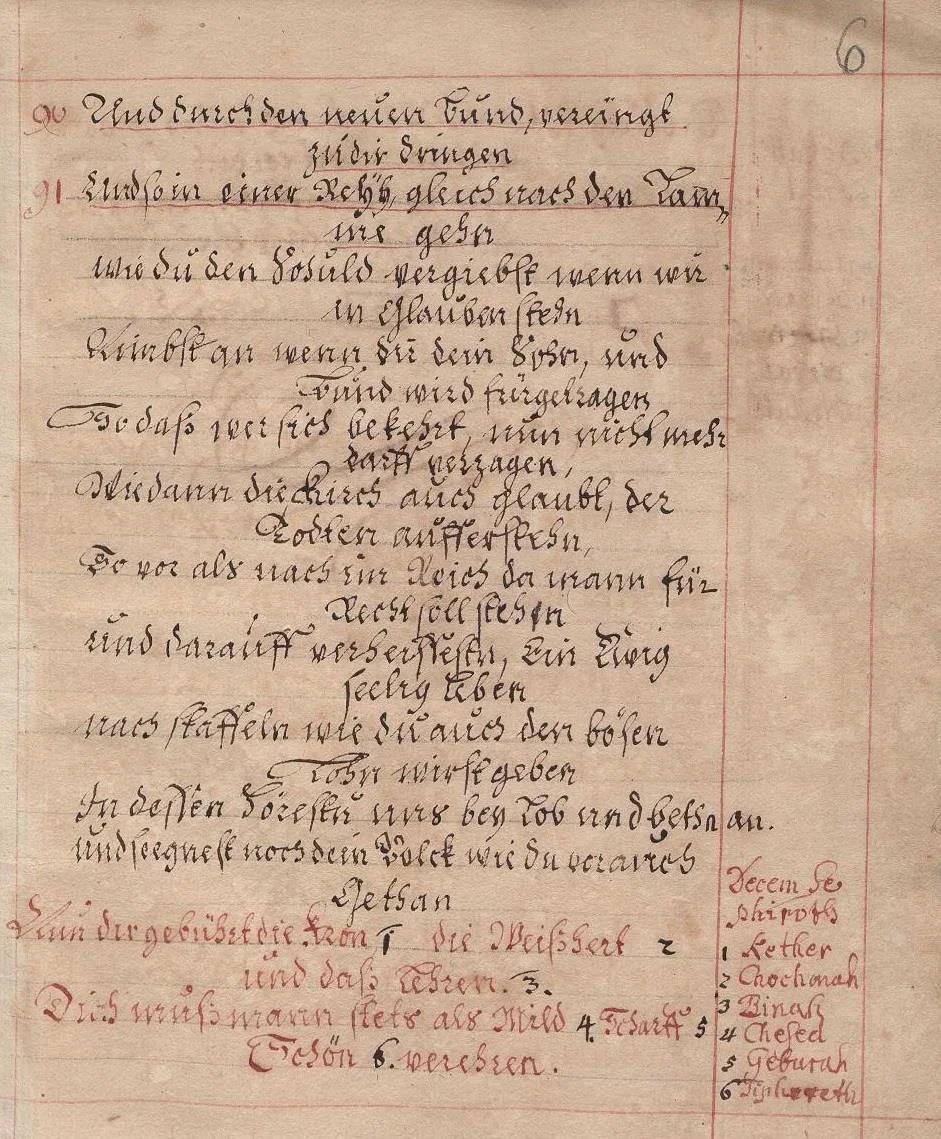 6
90 Und durch den neuen Bund, vereingt
zu dir dringen
91 Und so in einer Reyh, gleich nach den Lam̄
me gehn
wie du den Schuld vergiebst wenn wir
in Glauben stehn
Nimbst an wenn du dein Sohn, und
Bund wird fürgetragen
So daß wer sich bekehrt, nun nicht mehr
darff verzagen,
Wie dann die Kirch auch glaubt, der
Todten aufferstehn,
So vor als nach im Reich da mann für
Recht soll stehen
und darauff verheissestu, Ein Ewig
seelig Leben
nach staffeln wie du auch den bösen
Lohn wirst geben
In dessen hörestu uns bey Lob und bethn an.
und seegnest noch dein Volck wie du vor auch
Gethan
Nun dir gebührt die Kron 1 die Weißheit 2
und daß Lehren. 3.
Dich muß mann stets als Mild 4. Scharff 5
Schön 6. verehren.
Decem Se
phiroth
1 Kether
2 Chochmah
3 Binah
4 Chesed
5 Geburah
6 Tiphereth